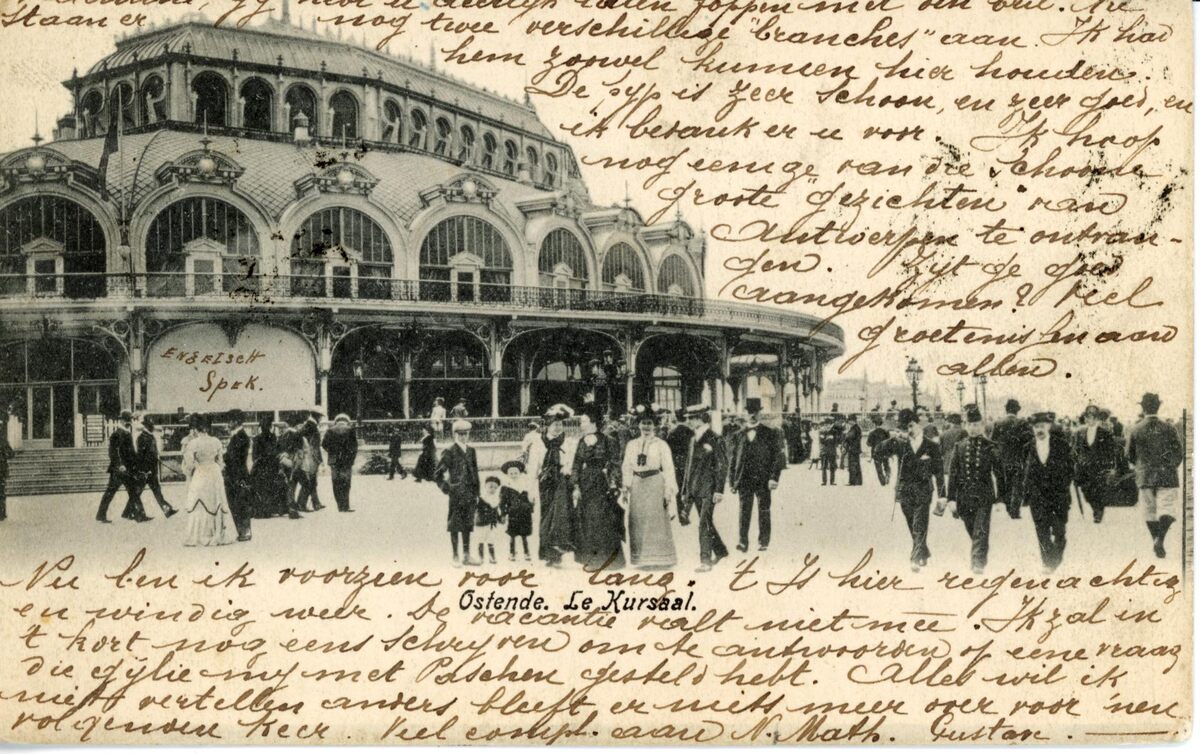 hier u deerlijk laten foppen met den
Staan er nog twee verschillige "branches" aan. Ik had
hem zoowel kunnen hier houden.
De pyp is zeer schoon, en zeer goed, en
ik bedank er u voor. Ik hoop
nog eenige van die schoone
groote gezichten van
Antwerpen te ontvan-
gen. Zyt ge goed
aangekomen? Veel
groetenissen aan
allen.
ENGELSCH
SPEK.
Nu ben ik voorzien voor lang. 't Is hier regenachtig
Ostende. Le Kursaal.
en windig weer. De vacantie valt niet mee. Ik zal in
't kort nog eens schryven om te antwoorden op eene vraag
die gylie my met Paschen gesteld hebt. Alles wil ik
niet vertellen anders blyft er niets meer over voor 'nen
volgenden keer. Veel compl. aan N. Math. Gustav.